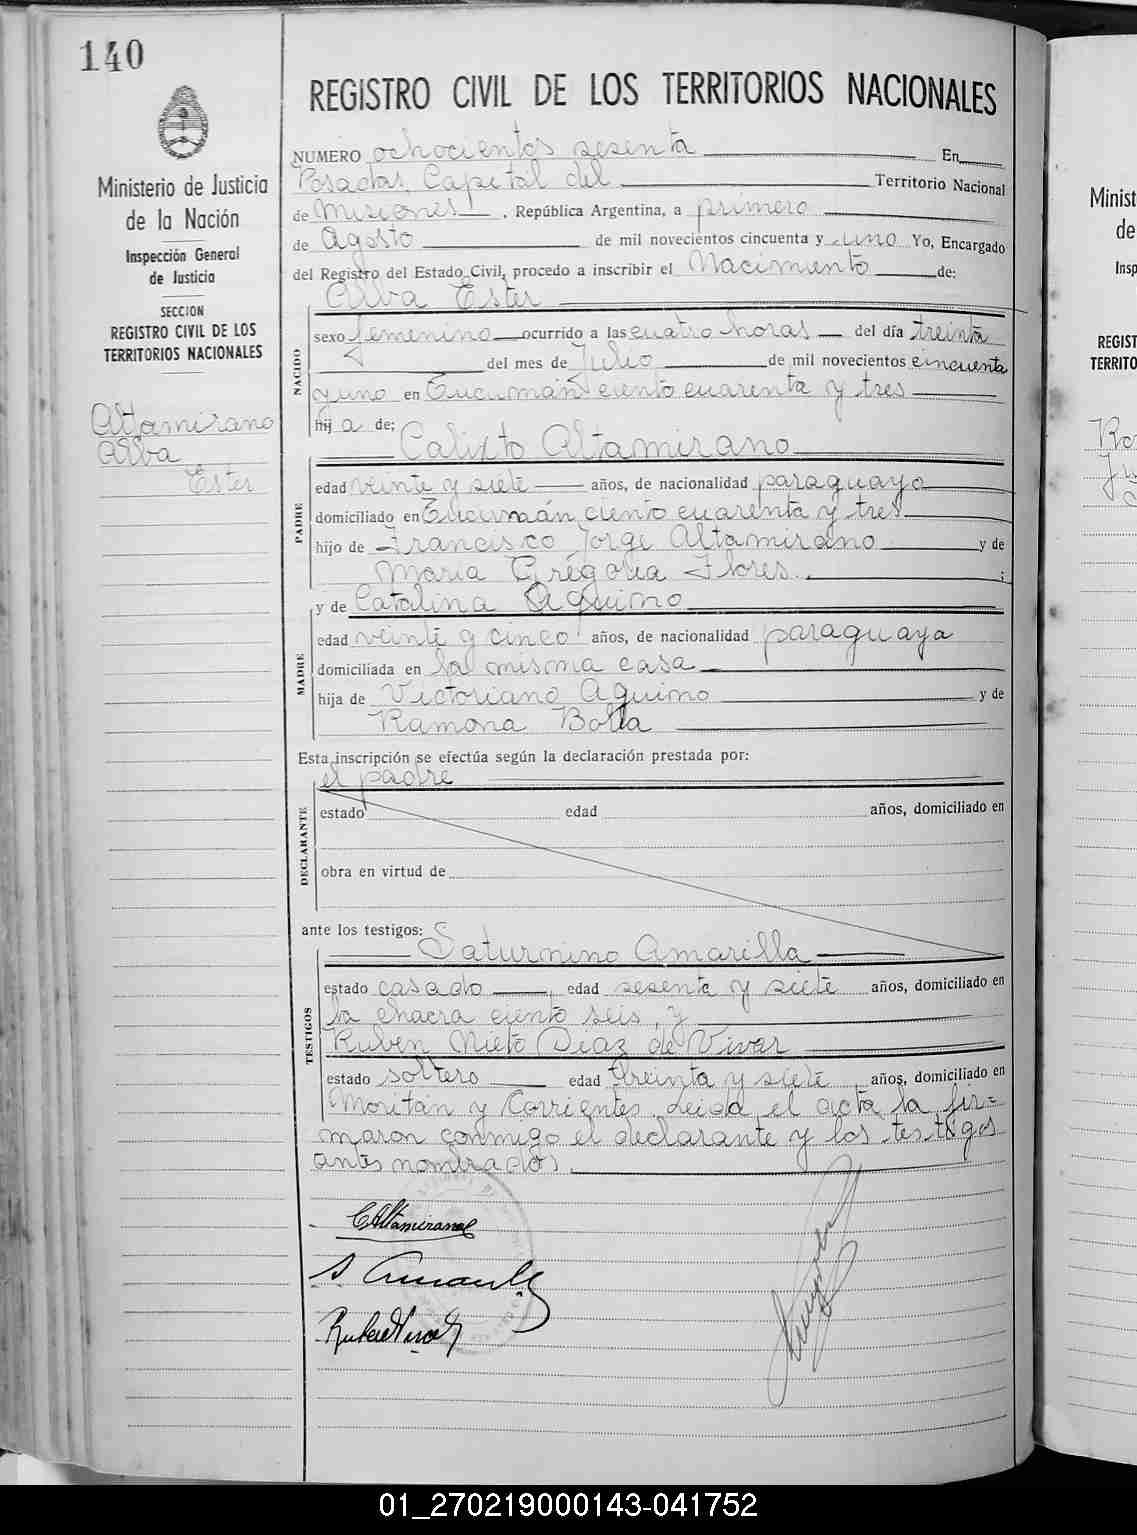 140
Ministerio de Justicia
de la Nación
Inspección General
de Justicia
SECCION
REGISTRO CIVIL DE LOS
TERRITORIOS NACIONALES
Altamirano
Alba
Ester
REGISTRO CIVIL DE LOS TERRITORIOS NACIONALES
NUMERO ochocientos sesenta En
Posadas, Capital del Territorio Nacional
de Misiones, República Argentina, a primero
de Agosto de mil novecientos cincuenta y uno Yo, Encargado
del Registro del Estado Civil, procedo a inscribir el Nacimiento de:
Alba Ester
NACIDO
sexo femenino ocurrido a las cuatro horas del día treinta
del mes de Julio de mil novecientos cincuenta
y uno en Tucumán ciento cuarenta y tres
hij a de;
Calixto Altamirano
PADRE
edad veinte y siete años, de nacionalidad paraguaya
domiciliado en Tucumán ciento cuarenta y tres
hijo de Francisco Jorge Altamirano y de
Maria Gregoria Flores. ;
y de Catalina Aquino
MADRE
edad veinte y cinco años, de nacionalidad paraguaya
domiciliada en la misma casa
hija de Victoriano Aquino y de
Ramona Bolla
Esta inscripción se efectúa según la declaración prestada por:
el padre
DECLARANTE
estado edad años, domiciliado en
obra en virtud de
ante los testigos:
Saturnino Amarilla
TESTIGOS
estado casado, edad sesenta y siete años, domiciliado en
la chacra ciento seis, y
Ruben Nieto Diaz de Vivar
estado soltero edad treinta y siete, años, domiciliado en
Moritán y Corrientes. Leida el acta la fir=
maron conmigo el declarante y los testigos
antes nombrados.
C Altamirano
S Amarilla
Minist
de
Insp
REGIST
TERRITO
01_270219000143-041752